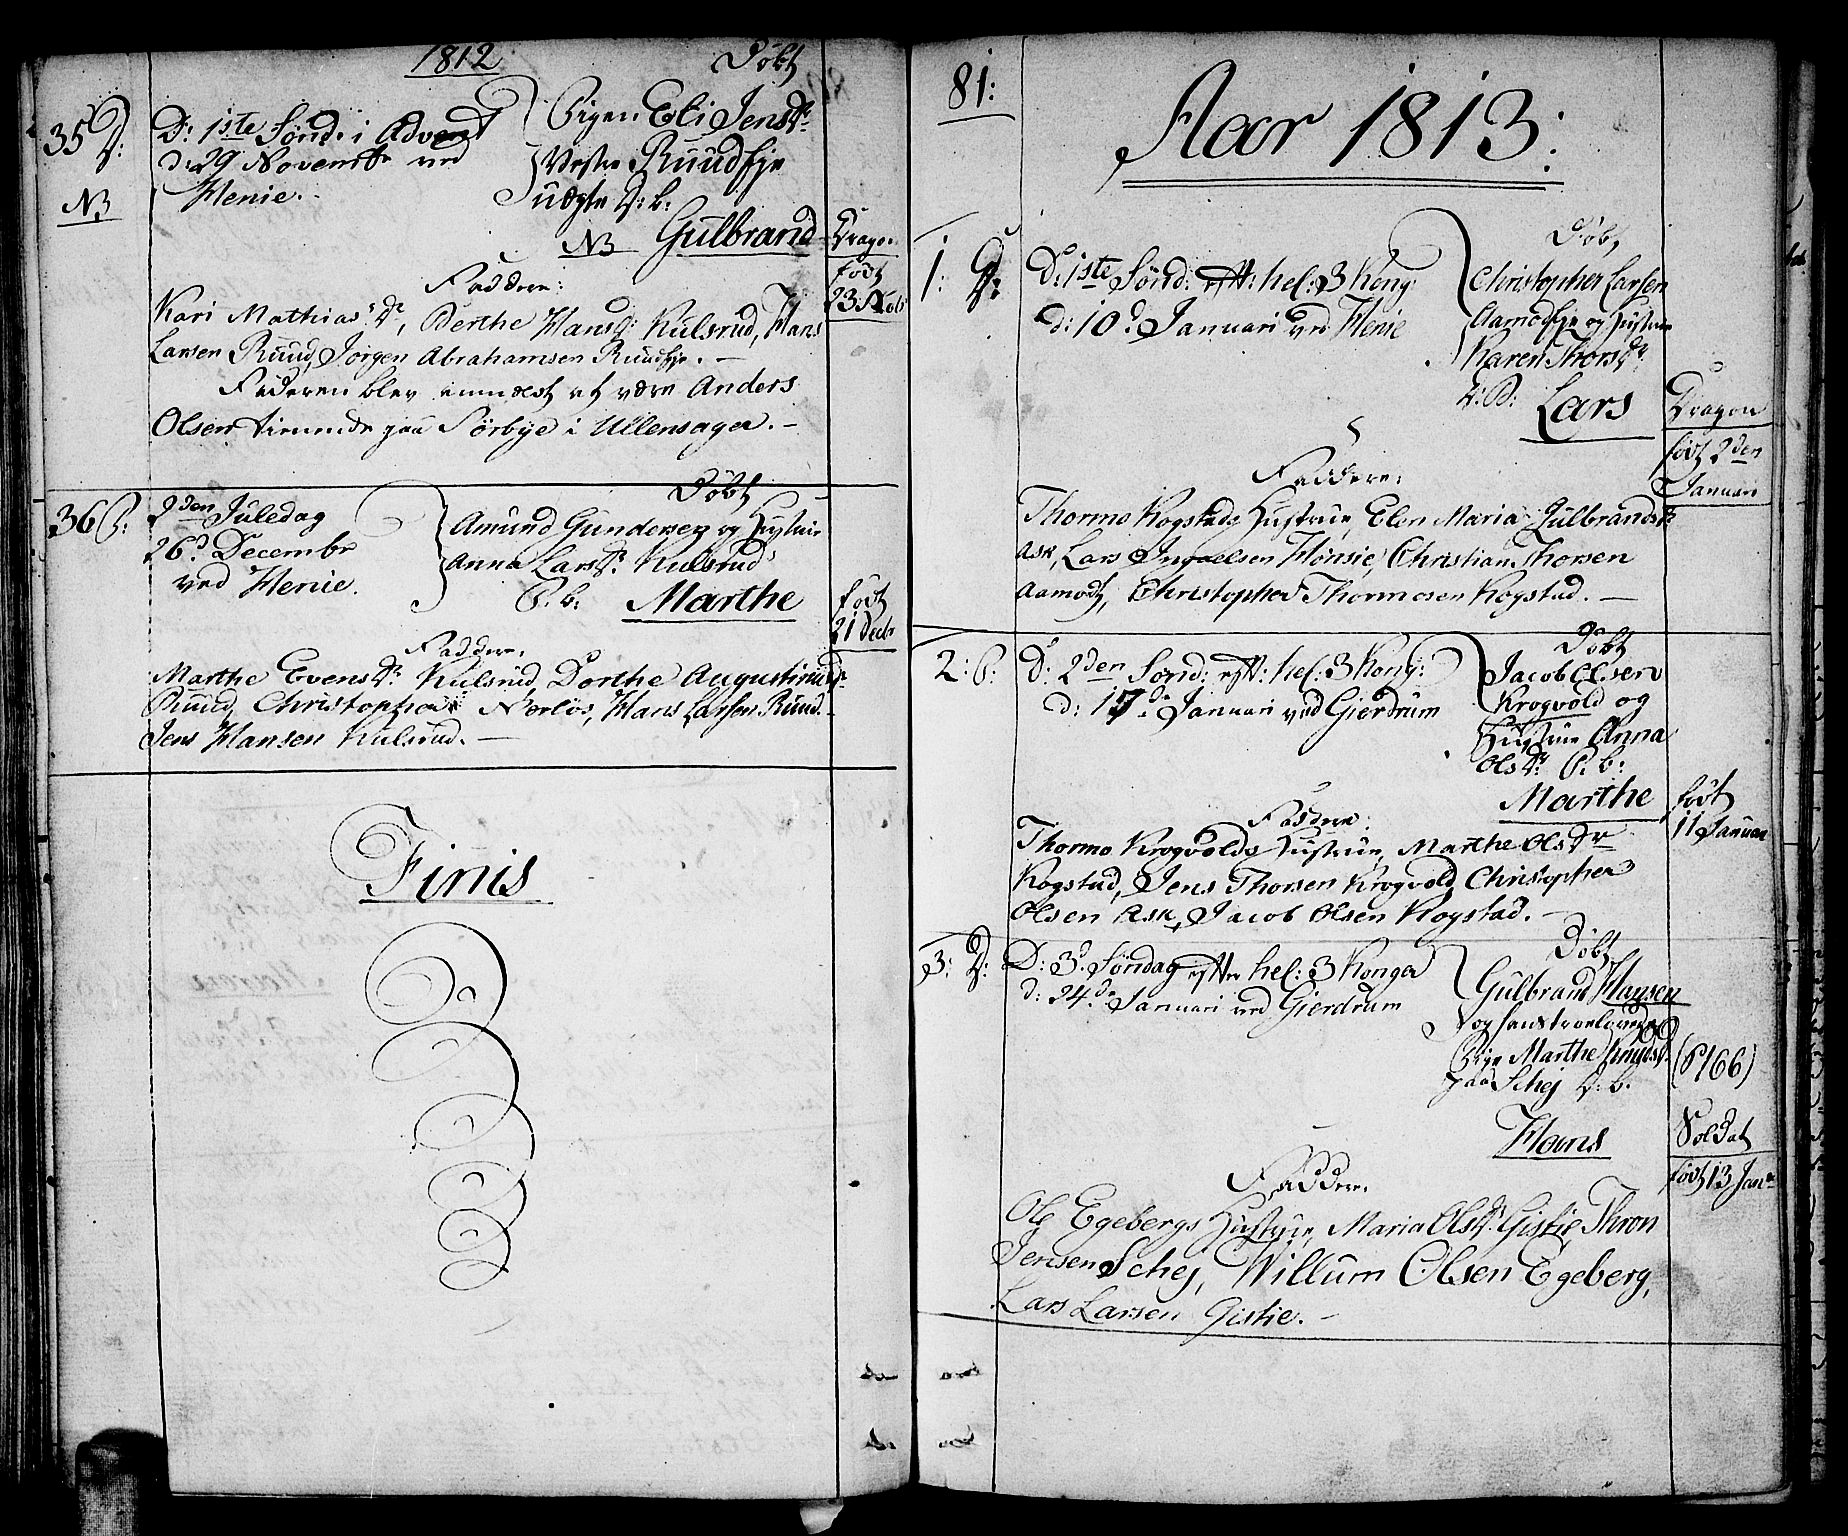 1812
Døbt
35 D:
D: 1ste Sønd: i Advent
d: 29 Novembr ved
Henie.
NB
Pigen Eli Jensdr
Vestre Ruudeje
uægte D: b:
NB Gulbrand
Dragon
født
23 Nob
Faddere:
Kari Mathiasdr, Berthe Hansdr: Kulsrud, Hans
Larsen Ruud, Jørgen Abrahamsen Ruudeje. —
Faderen blev anmeldt at være Anders
Olsen tienende paa Sørbye i Ullensager. —
36 P:
2den Juledag
26d Decembr
ved Henie.
Døbt
Amund Gundersen og Hustrue
Anna Larsdr: Kulsrud
P. b: Marthe
født
21 Decbr
Faddere,
Marthe Evensdr Kulsrud, Dorthe Augustinusdr
Ruud, Christopher Nærløs, Hans Larsen Ruud.
Jens Hansen Kulsrud. —
Finis
81:
Aar 1813:
1: D:
D: 1ste Sønd: eft: hel: 3 Kong:
d: 10d Januari ved Henie
Døbt
Christopher Larsen
Aamodeje og Hustrue
Karen Thorsdr
D: B: Lars
Dragon
født 2den
Januari
Faddere:
Thormo Kogstads Hustrue, Elen Maria Gulbrandsdr
Ask, Lars Ingvelsen Hønsie, Christian Thorsen
Aamodt, Christopher Thormosen Kogstad. —
2: P:
D: 2den Sønd: eft: hel: 3 Kong:
d: 17d Januari ved Gierdrum
Døbt
Jacob Olsen
Krogvold og
Hustrue Anna
Olsdr P: b:
Marthe
født
11 Januari
Faddere:
Thormo Krogvolds Hustrue, Marthe Olsdr
Kogstad, Jens Thorsen Krogvold, Christopher
Olsen Ask, Jacob Olsen Kogstad. —
3: D:
D: 3d Søndag efter hel: 3 Konger
d: 24d Januari ved Gierdrum
Døbt
Gulbrand Hansen
og hans trolovede
Pige Marthe
paa Schej D: b:
(P166)
Hans
Soldat
født 13 Janr
Faddere.
Ole Egebergs Hustrue, Maria Olsdr: Gistie, Thron
Jensen Schej, Willum Olsen Egeberg,
Lars Larsen Gistie. —